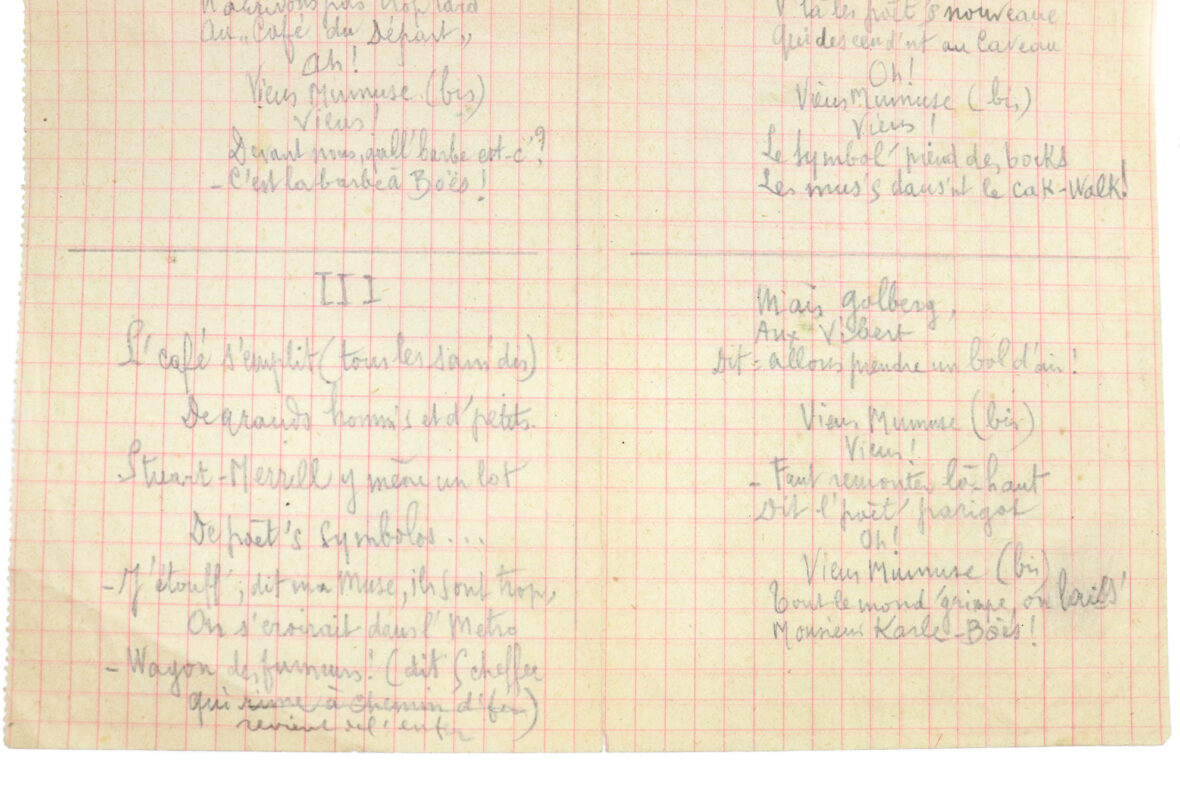 N'arrivons pas trop tard
Au „Café du Départ„
Ah!
Viens Mumuse (bis)
Viens!
Devant nous, quell' barbe est-c'?
- C'est la barbe à Boës!
III
L' café s'emplit (tous les sam'dis)
De grands homm's et d' petits.
Stuart-Merrill y mène un lot
De poèt's symbolos...
- J' étouff', dit ma Muse, ils sont trop,
On s' croirait dans l' Métro
- Wagon des fumeurs! (dit Scheffer
qui rime à chemin d' fer)
revient de l'enfer
V'là les poèt's nouveaux
Qui descend'nt au Caveau
Oh!
Viens Mumuse (bis)
Viens!
Le symbol' prend des bocks
Les mus's dans'nt le cak-Walk!
Mais Golberg,
Aux Vibert
Dit = allons prendre un bol d'air!
Viens Mumuse (bis)
Viens!
- Faut remonter là-haut
Dit l' poèt' parigot
Oh!
Viens Mumuse (bis)
Tout le mond' grimpe, on laiss'
Monsieur Karle-Boës!